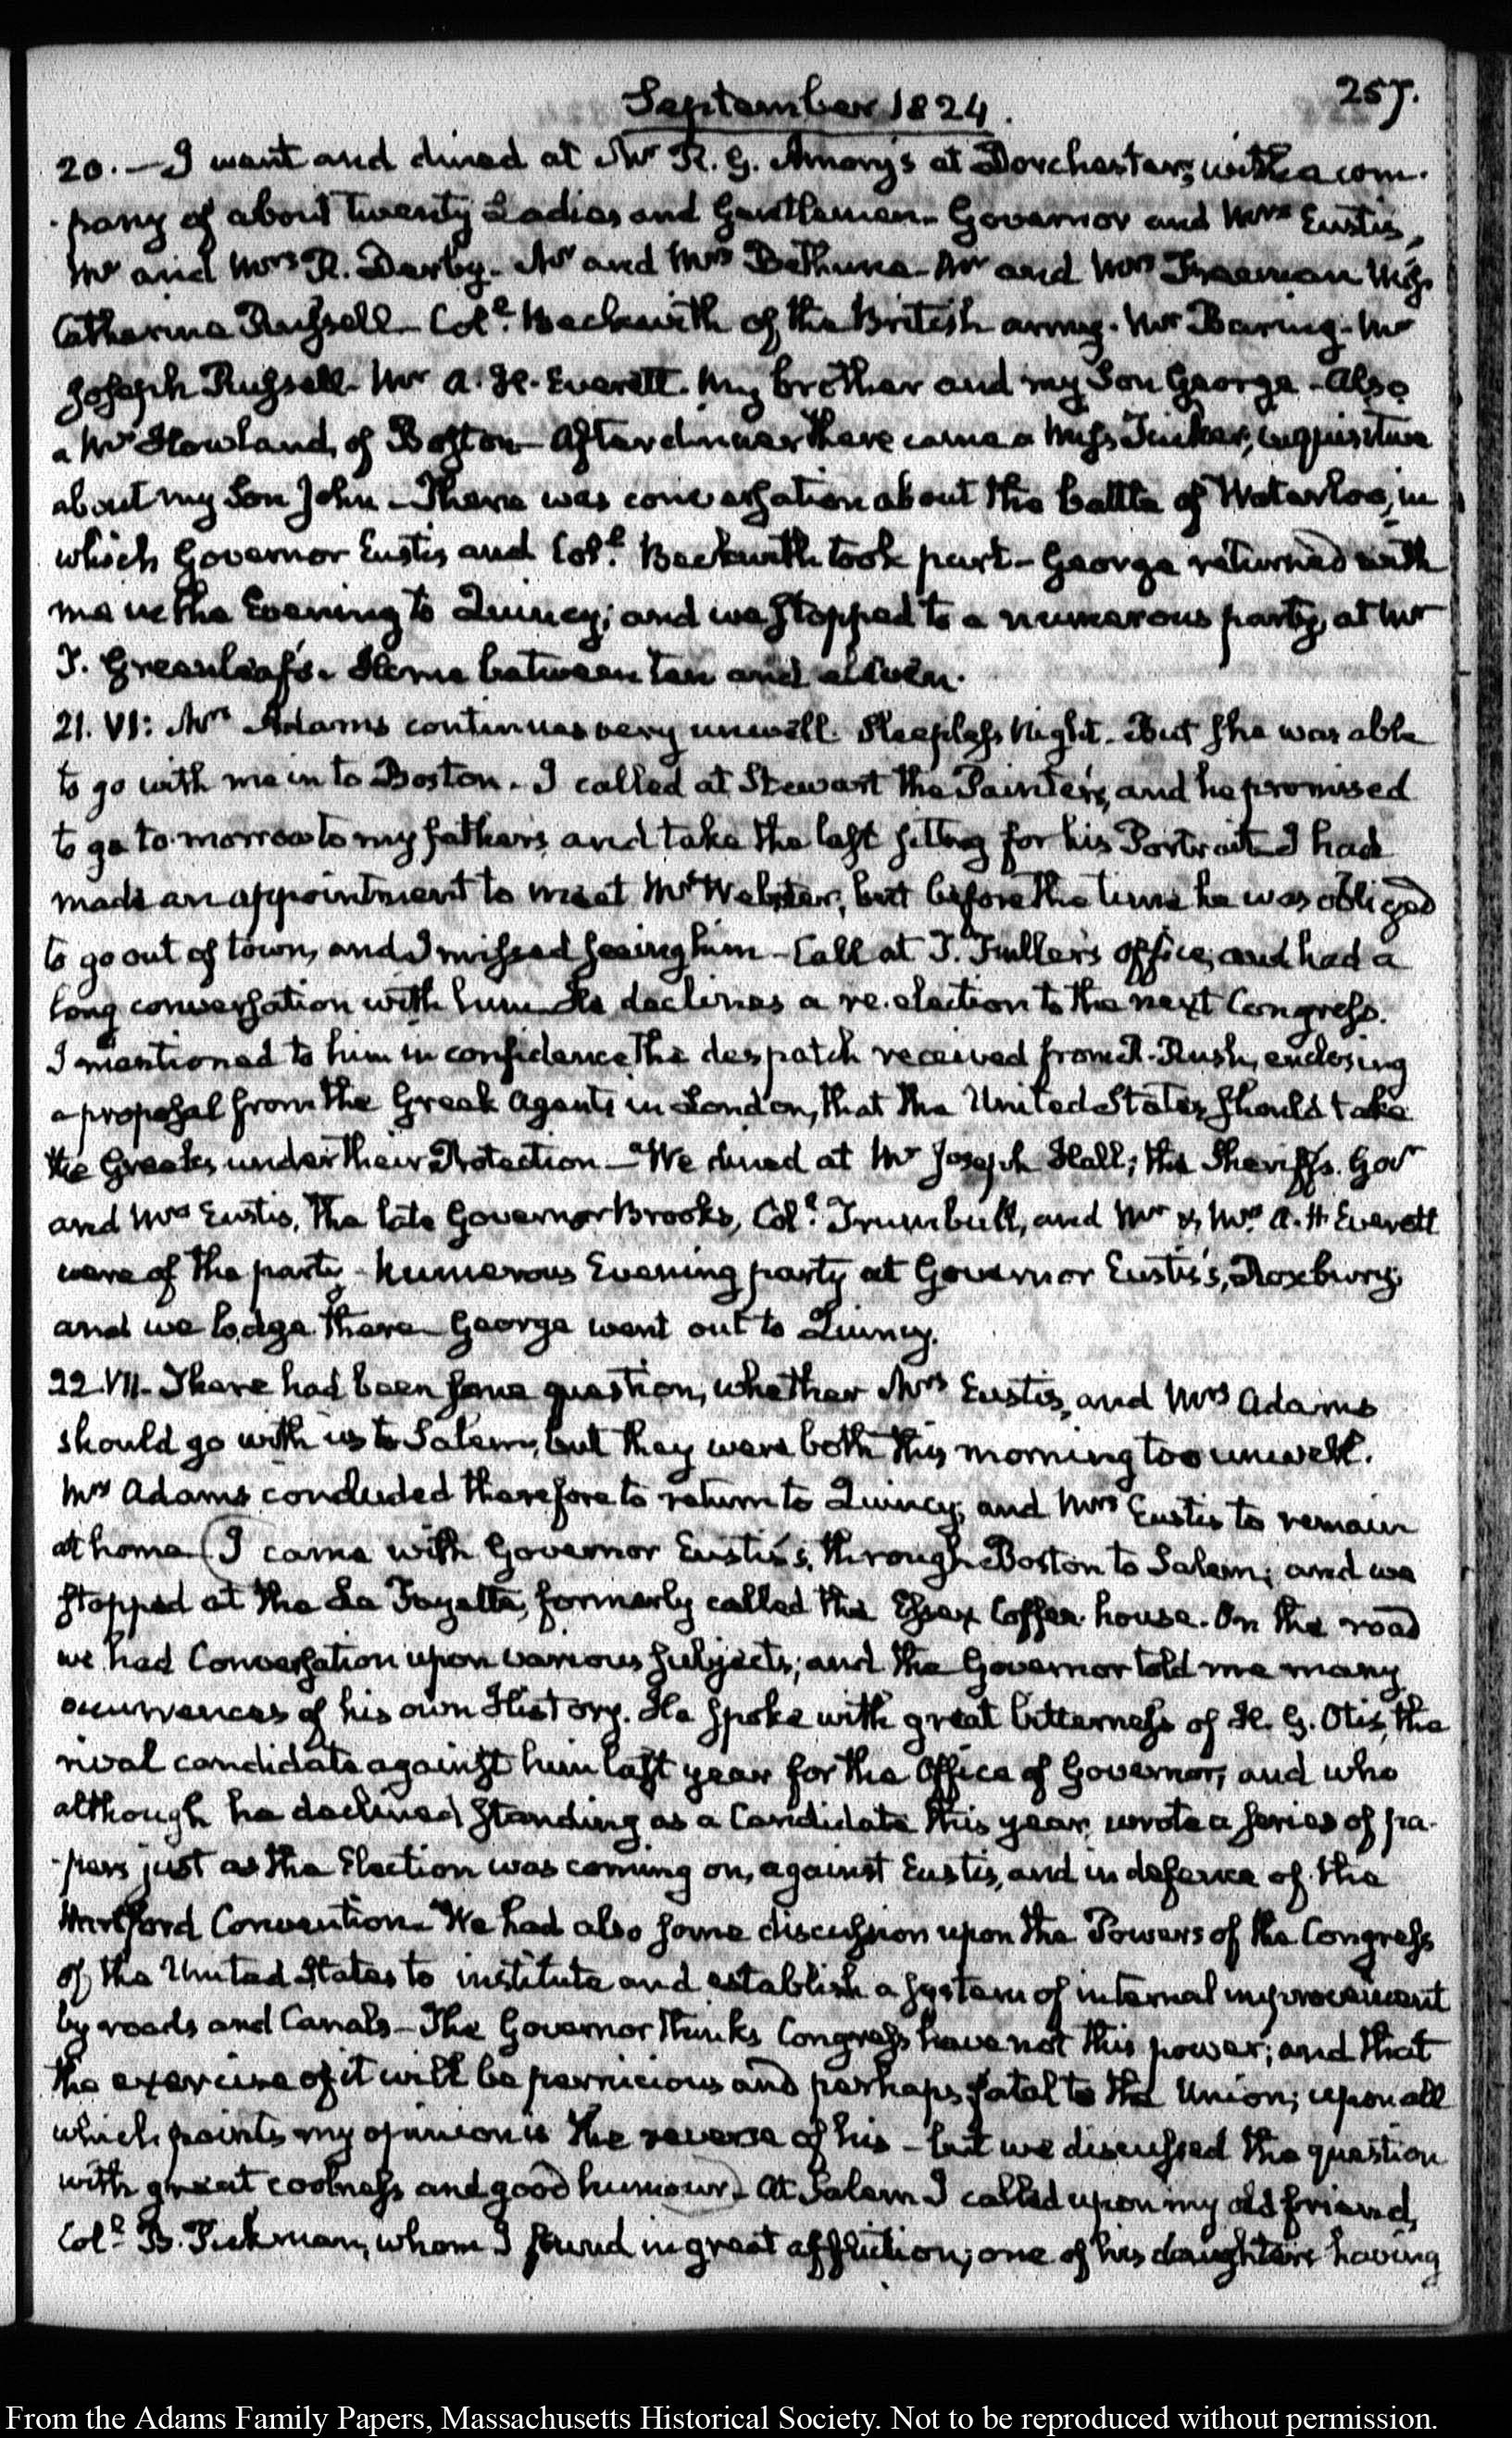 September 1824.
257.
20. — I went and dined at Mr R. G. Amory's at Dorchester, with a com-
-pany of about twenty Ladies and Gentlemen. Governor and Mrs Eustis,
Mr and Mrs R. Derby. Mr and Mrs Bethune. Mr and Mrs Freeman Miss
Catherine Russell. Coll. Beckwith of the British army. Mr Baring. Mr
Joseph Russell. Mr A. H. Everett. My brother and my Son George. Also
a Mr Howland, of Boston. After dinner there came a Miss Tucker, inquisitive
about my Son John. There was conversation about the battle of Waterloo, in
which Governor Eustis and Coll. Beckwith took part. George returned with
me in the Evening to Quincy; and we stopped to a numerous party, at Mr
T. Greenleaf's. Home between ten and eleven.
21. VI: Mrs Adams continues very unwell. Sleepless Night. But she was able
to go with me in to Boston. I called at Stewart the Painter's, and he promised
to go to-morrow to my father's and take the last sitting for his Portrait. I had
made an appointment to meet Mr Webster, but before the time he was obliged
to go out of town, and I missed seeing him. Call at T. Fuller's office, and had a
long conversation with him. He declines a re-election to the next Congress.
I mentioned to him in confidence the despatch received from R. Rush, enclosing
a proposal from the Greek Agents in London, that the United States should take
the Greeks under their Protection. We dined at Mr Joseph Hall; the Sheriff's. Govr
and Mrs Eustis, the late Governor Brooks, Coll. Trumbull, and Mr & Mrs A. H. Everett
were of the party. Numerous Evening party at Governor Eustis's, Roxbury,
and we lodge there. George went out to Quincy.
22. VII. There had been some question, whether Mrs Eustis, and Mrs Adams
should go with us to Salem, but they were both this morning too unwell.
Mrs Adams concluded therefore to return to Quincy, and Mrs Eustis to remain
at home. (I came with Governor Eustis's, through Boston to Salem; and we
stopped at the La Fayette, formerly called the Essex Coffee-house. On the road
we had Conversation upon various subjects; and the Governor told me many
occurrences of his own History. He spoke with great bitterness of H. G. Otis, the
rival candidate against him last year for the Office of Governor, and who
although he declined standing as a Candidate this year, wrote a series of pa-
-pers just as the Election was coming on, against Eustis, and in defence of the
Hartford Convention. We had also some discussion upon the Powers of the Congress
of the United States to institute and establish a system of internal improvement
by roads and Canals. The Governor thinks Congress have not this power; and that
the exercise of it will be pernicious and perhaps fatal to the Union; upon all
which points my opinion is the reverse of his — but we discussed the question
with great coolness and good humour). At Salem I called upon my old friend,
Coll. B. Pickman, whom I found in great affliction; one of his daughters having
From the Adams Family Papers, Massachusetts Historical Society. Not to be reproduced without permission.